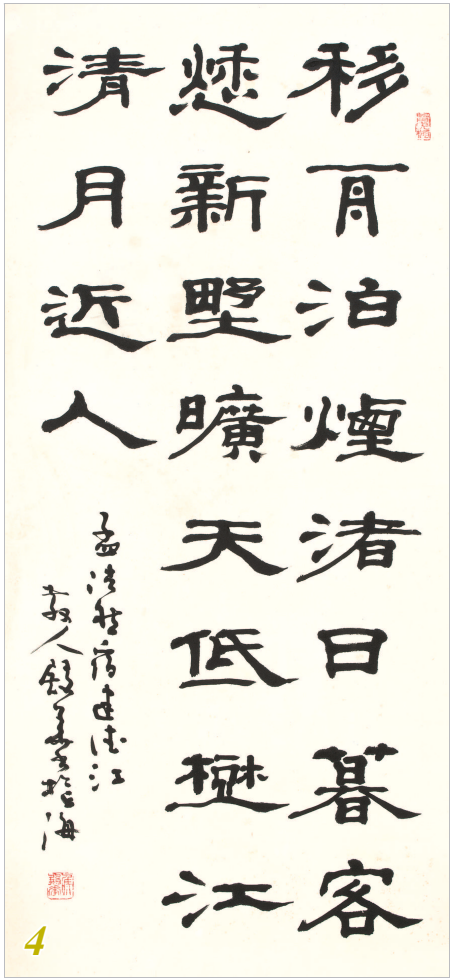 移舟泊煙渚日暮客
愁新墅曠天低樹江
清月近人
孟浩然宿建德江
人書於海
4